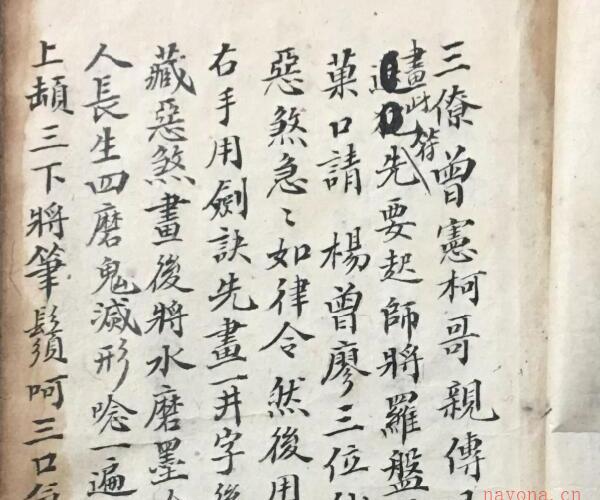 三僚曾憲柯哥親傳
畫此符先要起師將羅盤
菓口請楊曾廖三位
惡煞急〻如律令然後用
右手用劍訣先畫一井字後
藏惡煞畫後將水磨墨
人長生四磨鬼滅形唸一遍
上頓三下將筆鬚呵三口氣
nayona.cn